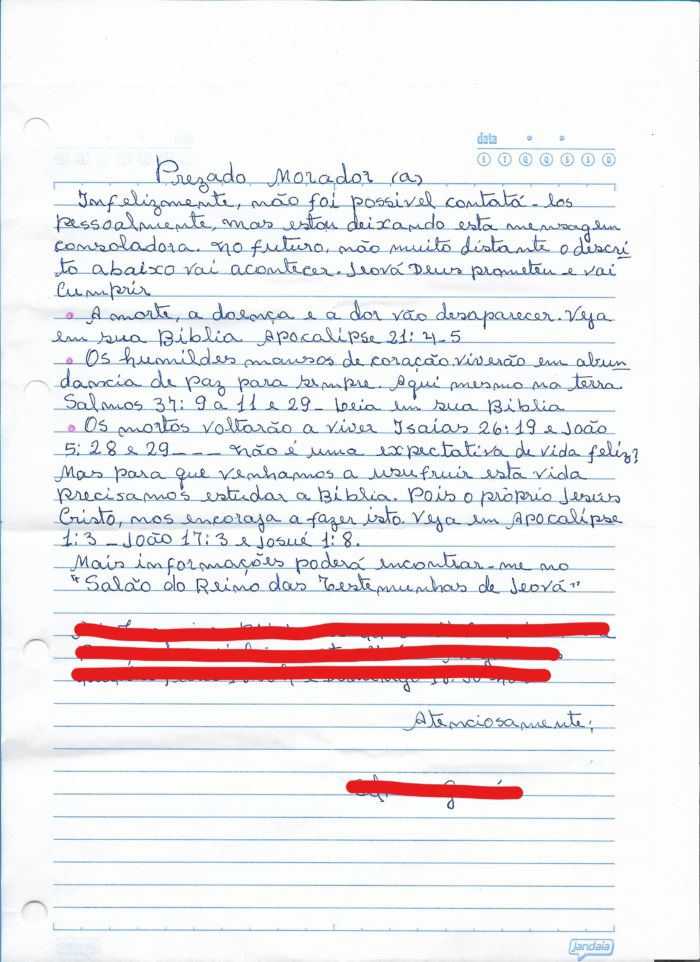 data
S T Q Q S S D
Prezado Morador (a)
Infelizmente, não foi possivel contatá-los
pessoalmente, mas estou deixando esta mensagem
consoladora. no futuro, não muito distante o descri
to abaixo vai acontecer. Jeová Deus prometeu e vai
cumprir
• A morte, a doença e a dor vão desaparecer. Veja
em sua Bíblia Apocalípse 21: 4-5
• Os humildes mansos de coração, viverão em abun
dancia de paz para sempre. Aqui mesmo na terra
Salmos 37: 9 a 11 e 29 - Leia em sua Biblia
• Os mortos voltarão a viver Isaías 26:19 e João
5: 28 e 29 _ _ _ não é uma expectativa de vida feliz?
Mas para que venhamos a usufruir esta vida
precisamos estudar a Bíblia. Pois o próprio Jesus
Cristo, nos encoraja a fazer isto. Veja em Apocalípse
1:3 - João 17:3 e Josué 1:8.
Mais informações poderá encontrar-me no
"Salão do Reino das Testemunhas de Jeová"
Atenciosamente;
jandaia